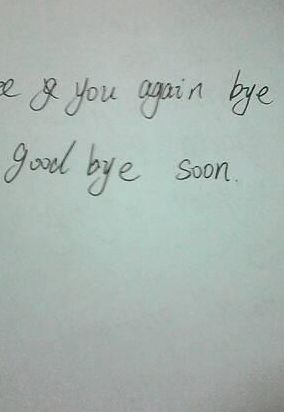 you again bye
good bye soon.